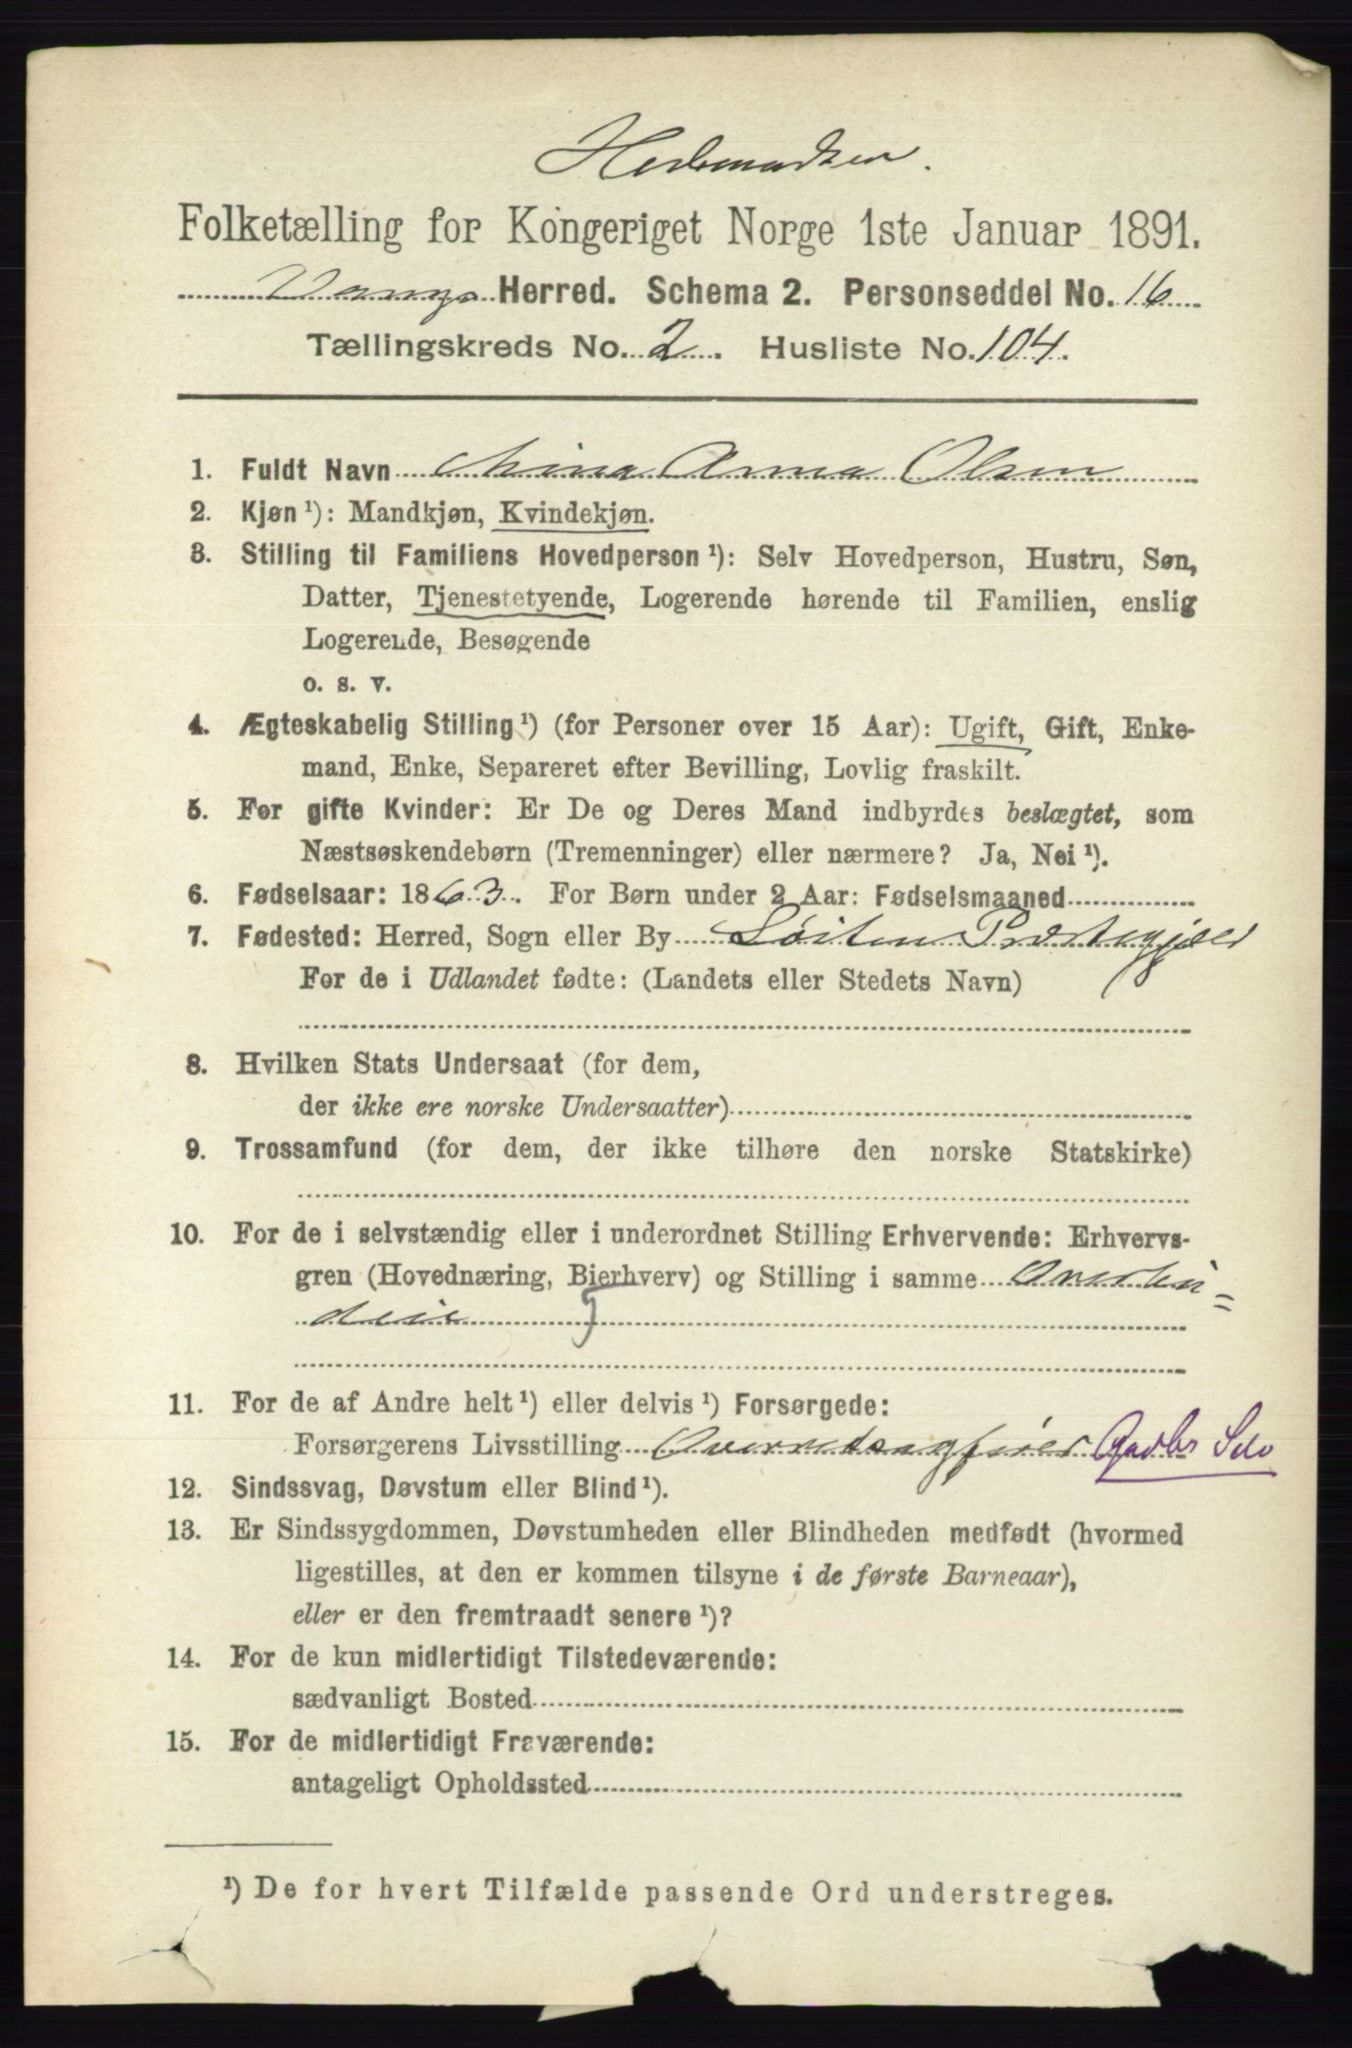 Hedemarken.
Folketælling for Kongeriget Norge 1ste Januar 1891.
Vangs Herred. Schema 2. Personseddel No. 16
Tællingskreds No. 2. Husliste No. 104.
1. Fuldt Navn Mina Anna Olsen
2. Kjøn ¹): Mandkjøn, Kvindekjøn.
3. Stilling til Familiens Hovedperson ¹): Selv Hovedperson, Hustru, Søn,
Datter, Tjenestetyende, Logerende hørende til Familien, enslig
Logerende, Besøgende
o. s. v.
4. Ægteskabelig Stilling ¹) (for Personer over 15 Aar): Ugift, Gift, Enke-
mand, Enke, Separeret efter Bevilling, Lovlig fraskilt.
5. For gifte Kvinder: Er De og Deres Mand indbyrdes beslægtet, som
Næstsøskendebørn (Tremenninger) eller nærmere? Ja, Nei ¹).
6. Fødselsaar: 1863. For Børn under 2 Aar: Fødselsmaaned
7. Fødested: Herred, Sogn eller By Løiten Præstegjæld
For de i Udlandet fødte: (Landets eller Stedets Navn)
8. Hvilken Stats Undersaat (for dem,
der ikke ere norske Undersaatter)
9. Trossamfund (for dem, der ikke tilhøre den norske Statskirke)
10. For de i selvstændig eller i underordnet Stilling Erhvervende: Erhvervs-
gren (Hovednæring, Bierhverv) og Stilling i samme Overbu=
deie
11. For de af Andre helt ¹) eller delvis ¹) Forsørgede:
Forsørgerens Livsstilling Overredsagfører Gaardbr Selv
12. Sindssvag, Døvstum eller Blind ¹).
13. Er Sindssygdommen, Døvstumheden eller Blindheden medfødt (hvormed
ligestilles, at den er kommen tilsyne i de første Barneaar),
eller er den fremtraadt senere ¹)?
14. For de kun midlertidigt Tilstedeværende:
sædvanligt Bosted
15. For de midlertidigt Fraværende:
antageligt Opholdssted
¹) De for hvert Tilfælde passende Ord understreges.